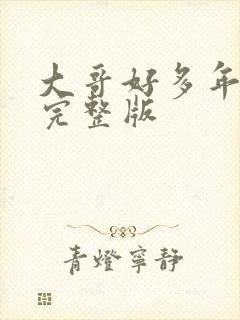 大哥好多年
完整版
青燈寧靜